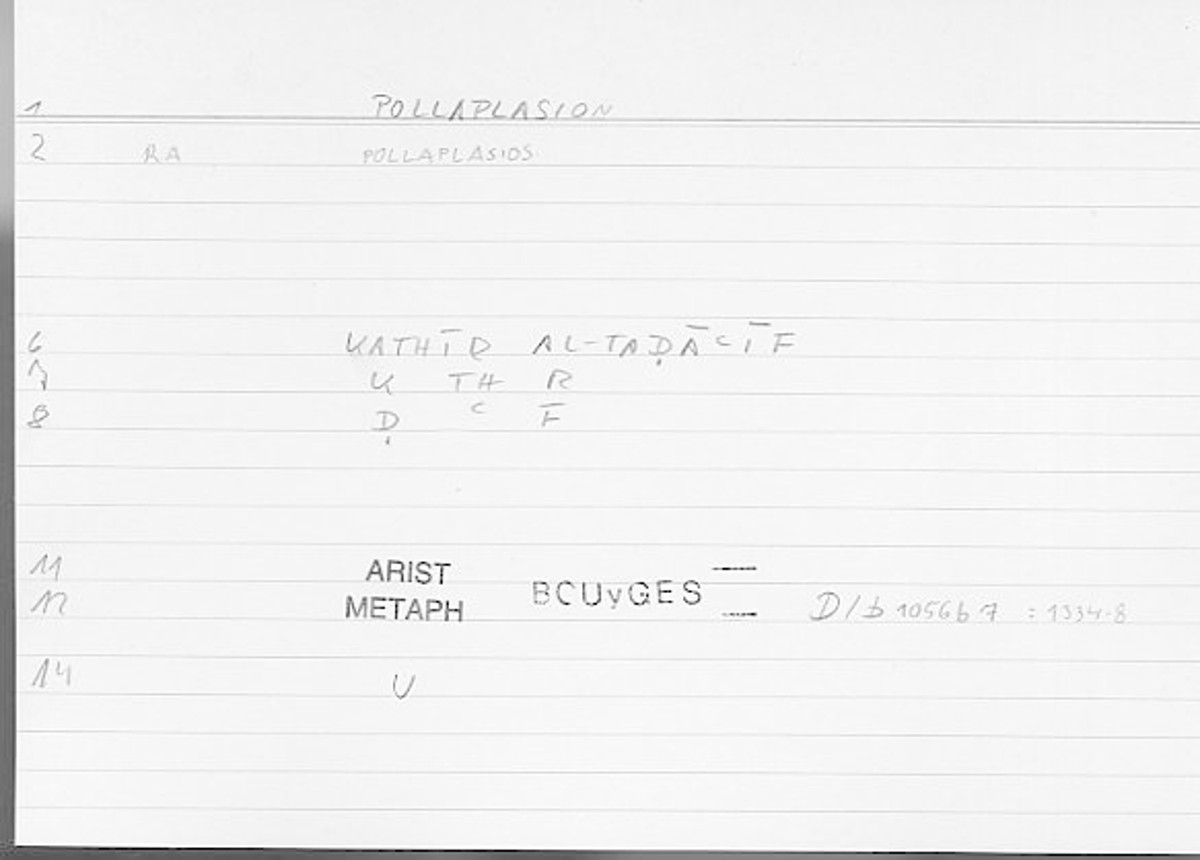 1 POLLAPLASION
2 RA POLLAPLASIOS
6 KATHĪR AL-TAḌĀCĪF
7 K TH R
8 Ḍ C F
11 ARIST
12 METAPH BCUyGES D/b 1056b7 : 1334-8
14 U